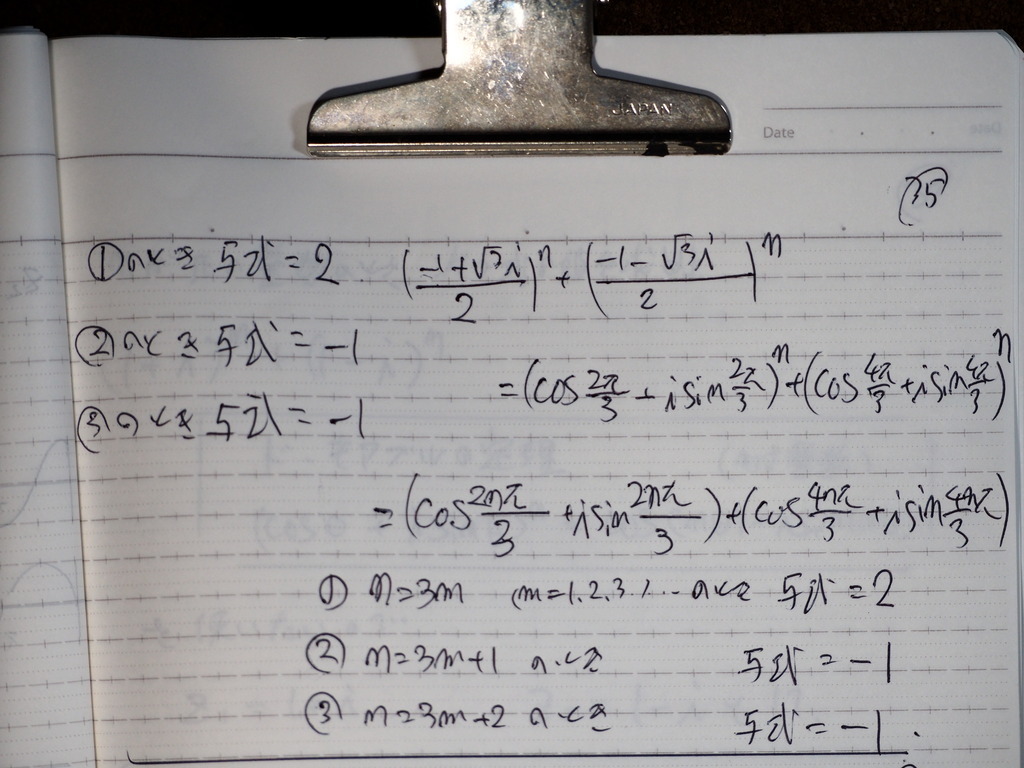 JAPAN
Date
35
①のとき 与式 = 2
((-1+√3i)/2)^n + ((-1-√3i)/2)^n
②のとき 与式 = -1
= (cos 2π/3 + i sin 2π/3)^n + (cos 4π/3 + i sin 4π/3)^n
③のとき 与式 = -1
= (cos 2nπ/3 + i sin 2nπ/3) + (cos 4nπ/3 + i sin 4nπ/3)
① n=3m (m=1,2,3,... のとき 与式 = 2
② n=3m+1 のとき 与式 = -1
③ n=3m+2 のとき 与式 = -1.